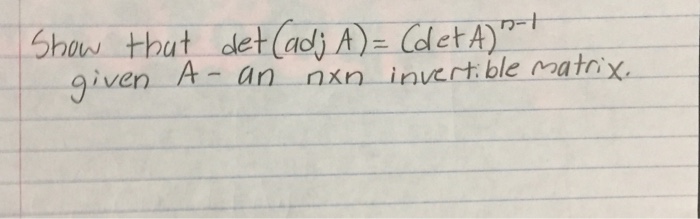 Show that det(adj A) = (det A)^{n-1}
given A - an nxn invertible matrix.